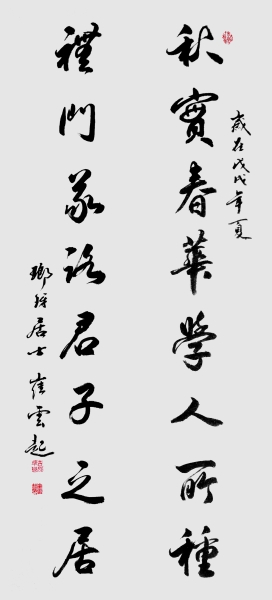 歲在戊戌年夏
秋實春華學人所種
禮門義路君子之居
瑯琊居士崔雲起